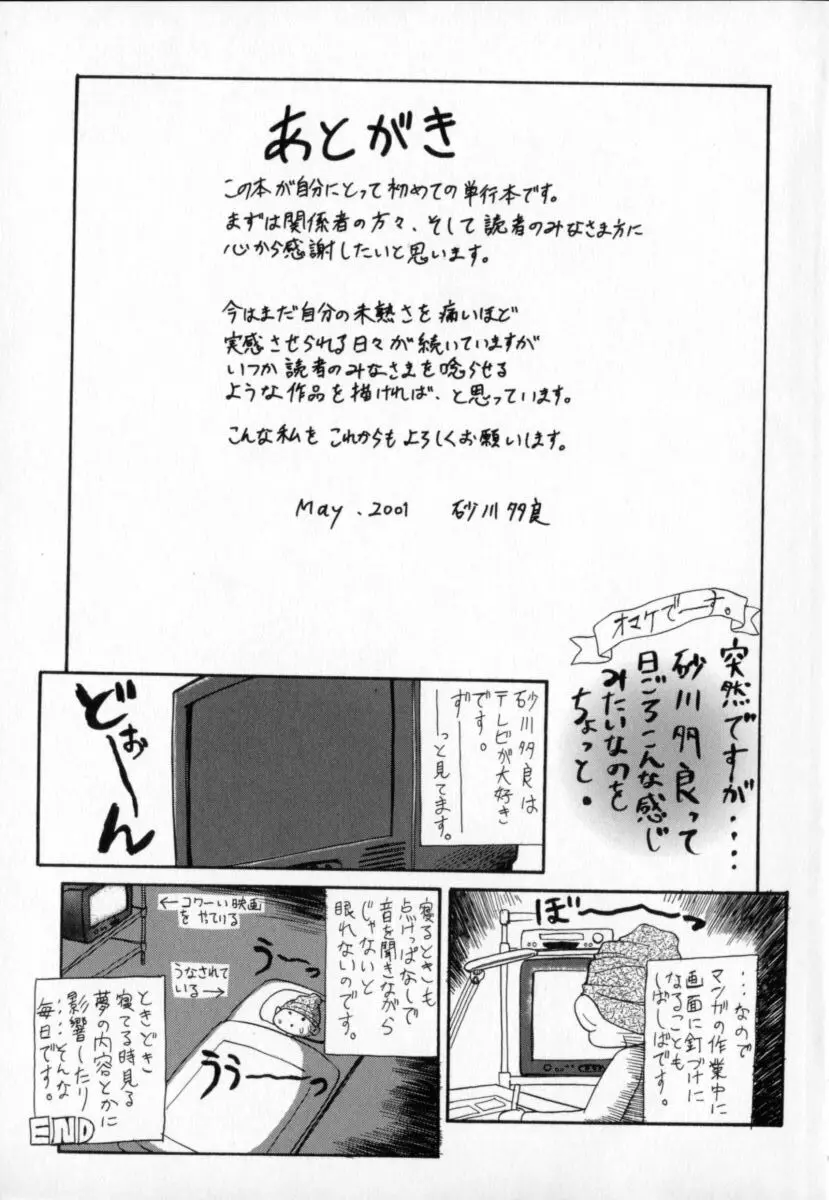 あとがき
この本が自分にとって初めての単行本です。
まずは関係者の方々、そして読者のみなさま方に
心から感謝したいと思います。
今はまだ自分の未熟さを痛いほど
実感させられる日々が続いていますが
いつか読者のみなさまを唸らせる
ような作品を描ければ、と思っています。
こんな私をこれからもよろしくお願いします。
May.2001 砂川多良
オマケでーす。
突然ですが‥‥
砂川多良って
日ごろこんな感じ
みたいなのを
ちょっと。
砂川多良は
テレビが大好き
です。
ず――
――っと見てます。
どぉーん
…なので
マンガの作業中に
画面に釘づけに
なることも
しばしばです。
ぼ〜〜っ
寝るときも
点けっぱなしで
音を聞きながら
じゃないと
眠れないのです。
←コワーい映画
をやている
う〜っ
うなされて
いる→
うぅ〜っ
ときどき
寝てる時見る
夢の内容とかに
影響したり
‥‥そんな
毎日です。
END